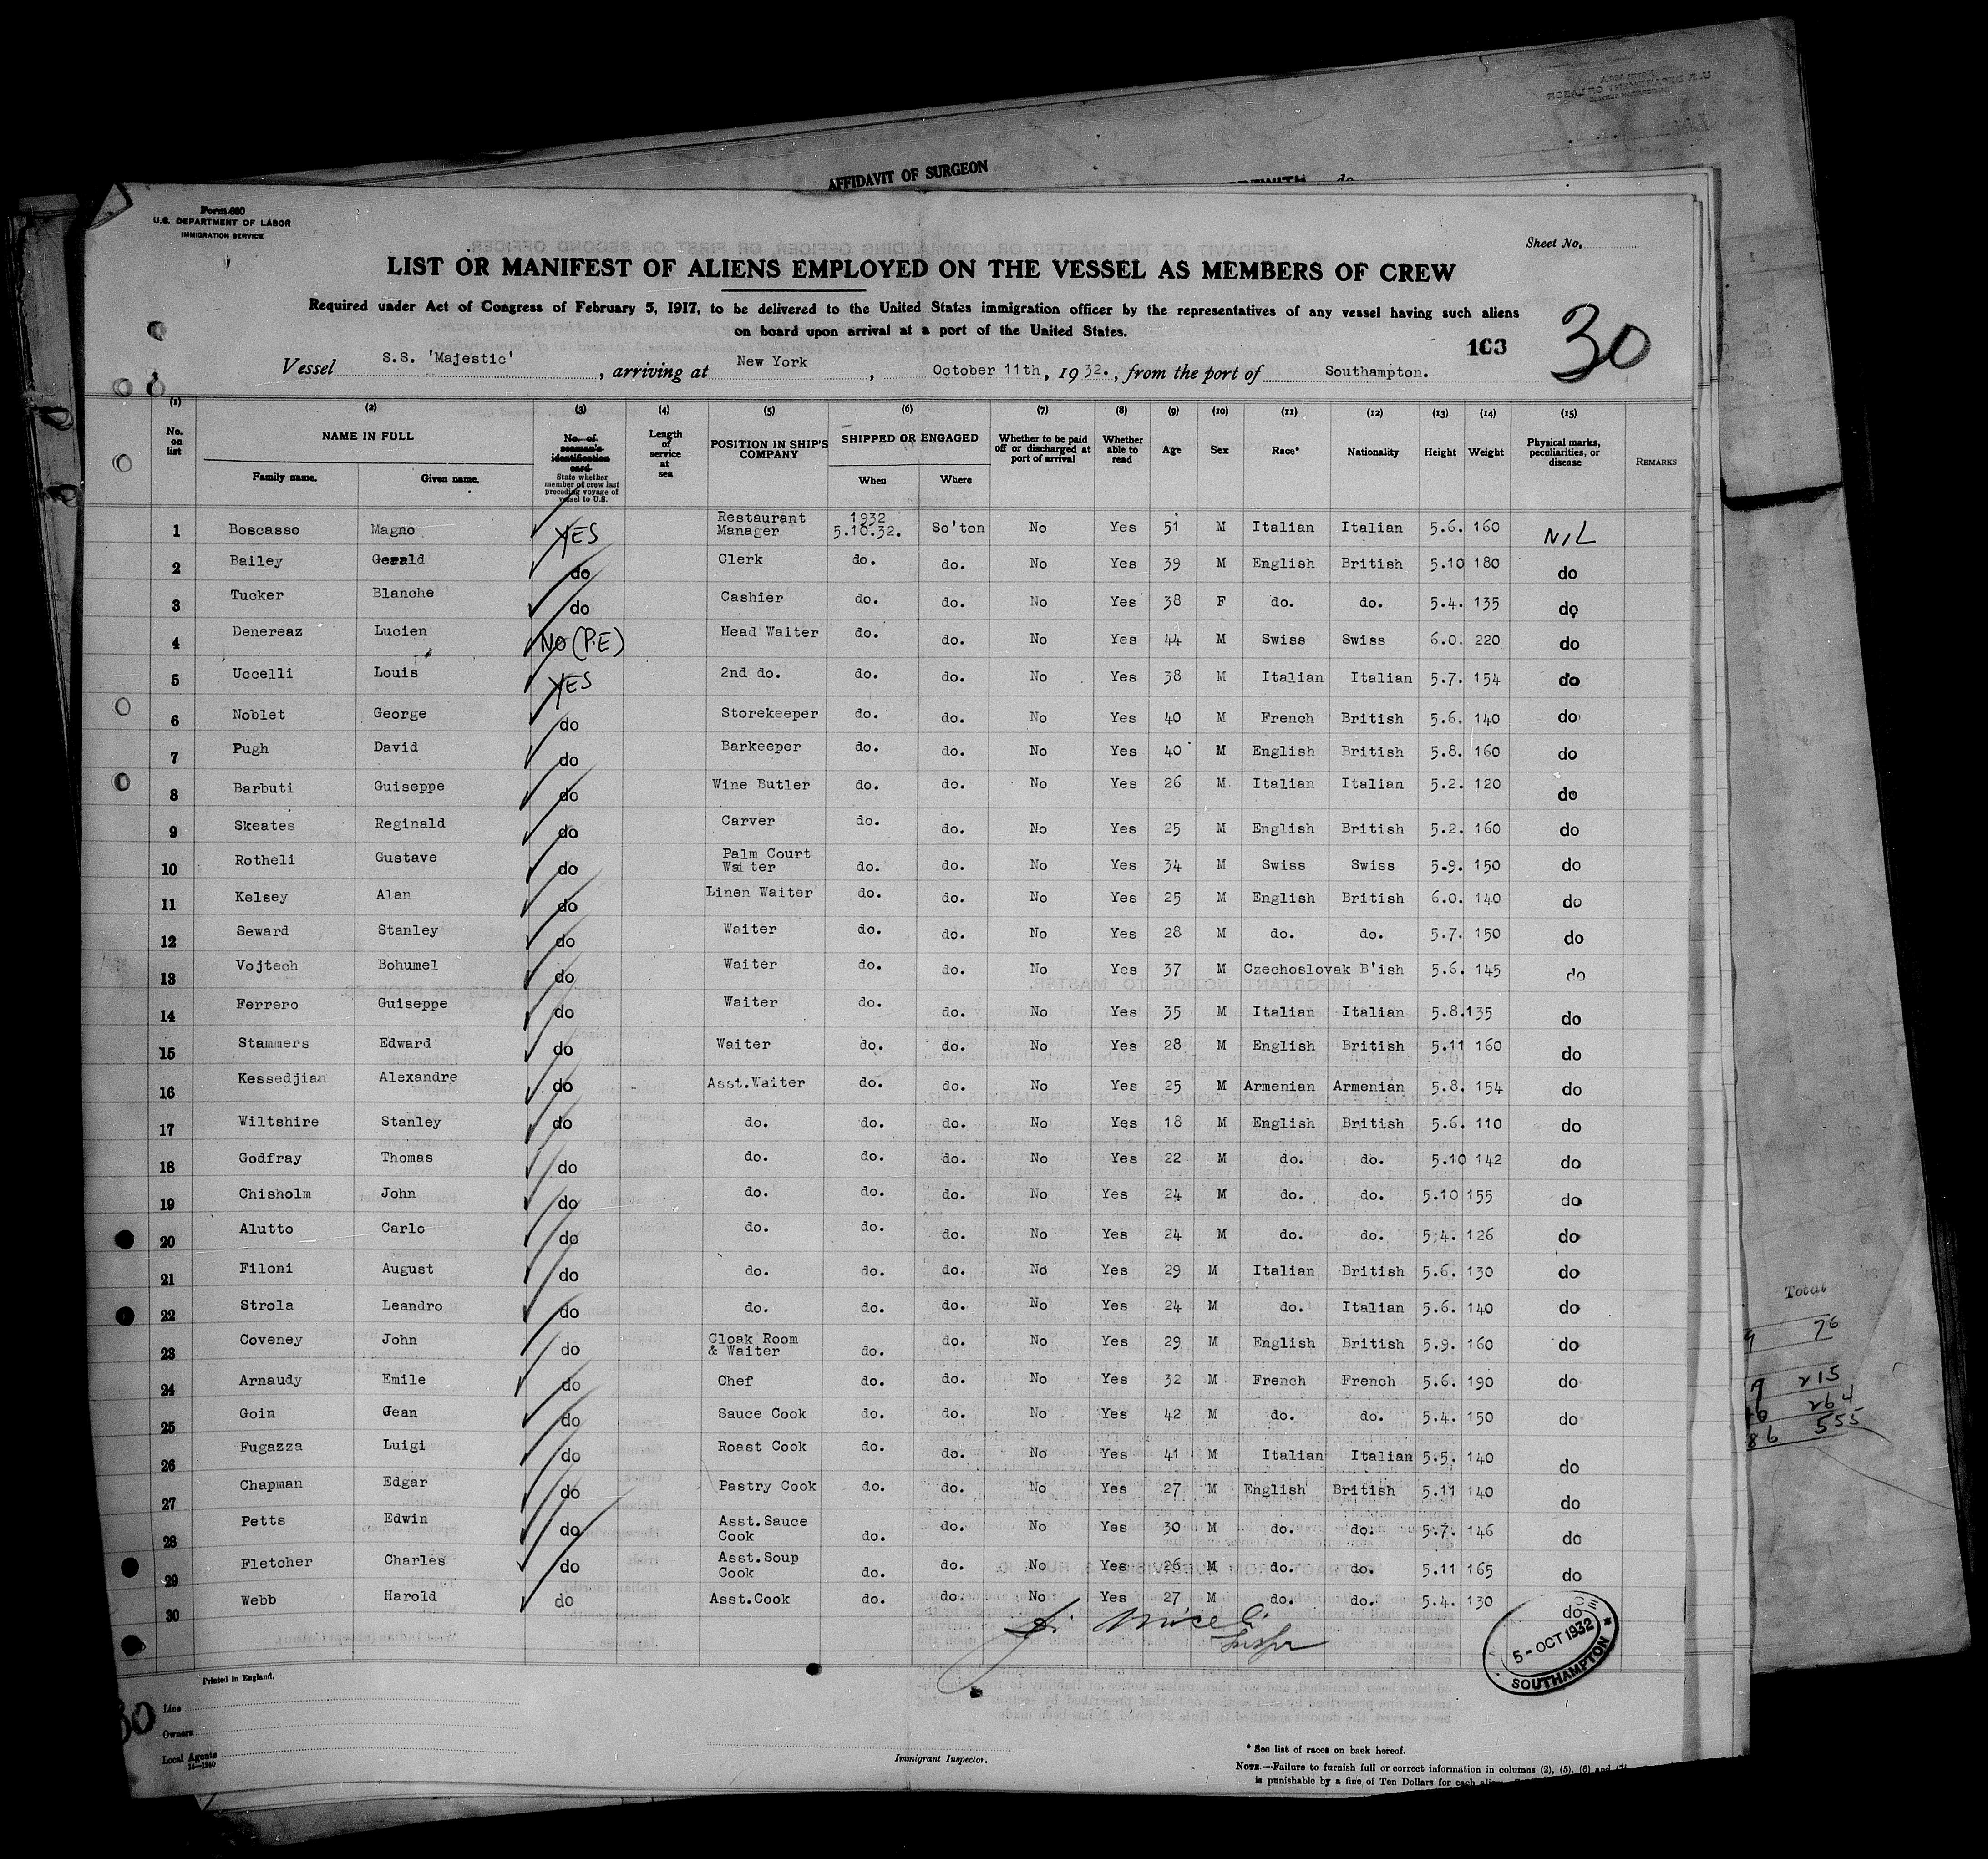 AFFIDAVIT OF SURGEON
Form 680
U.S. DEPARTMENT OF LABOR
IMMIGRATION SERVICE
Sheet No.
LIST OR MANIFEST OF ALIENS EMPLOYED ON THE VESSEL AS MEMBERS OF CREW
Required under Act of Congress of February 5, 1917, to be delivered to the United States immigration officer by the representatives of any vessel having such aliens
on board upon arrival at a port of the United States.
103 30
Vessel S.S. 'Majestic', arriving at New York, October 11th, 1932., from the port of Southampton.
(1) (2) (3) (4) (5) (6) (7) (8) (9) (10) (11) (12) (13) (14) (15)
No. on list NAME IN FULL Family name. Given name. No. of seaman's identification card State whether member of crew last preceding voyage of vessel to U.S. Length of service at sea POSITION IN SHIP'S COMPANY SHIPPED OR ENGAGED When Where Whether to be paid off or discharged at port of arrival Whether able to read Age Sex Race* Nationality Height Weight Physical marks, peculiarities, or disease REMARKS
1 Boscasso Magno YES Restaurant Manager 1932 5.10.32. So'ton No Yes 51 M Italian Italian 5.6. 160 NIL
2 Bailey Gerald do Clerk do. do. No Yes 39 M English British 5.10 180 do
3 Tucker Blanche do Cashier do. do. No Yes 38 F do. do. 5.4. 135 do
4 Denereaz Lucien NO (P.E) Head Waiter do. do. No Yes 44 M Swiss Swiss 6.0. 220 do
5 Uccelli Louis YES 2nd do. do. do. No Yes 38 M Italian Italian 5.7. 154 do
6 Noblet George do Storekeeper do. do. No Yes 40 M French British 5.6. 140 do
7 Pugh David do Barkeeper do. do. No Yes 40 M English British 5.8. 160 do
8 Barbuti Guiseppe do Wine Butler do. do. No Yes 26 M Italian Italian 5.2. 120 do
9 Skeates Reginald do Carver do. do. No Yes 25 M English British 5.2. 160 do
10 Rotheli Gustave do Palm Court Waiter do. do. No Yes 34 M Swiss Swiss 5.9. 150 do
11 Kelsey Alan do Linen Waiter do. do. No Yes 25 M English British 6.0. 140 do
12 Seward Stanley do Waiter do. do. No Yes 28 M do. do. 5.7. 150 do
13 Vojtech Bohumel do Waiter do. do. No Yes 37 M Czechoslovak B'ish 5.6. 145 do
14 Ferrero Guiseppe do Waiter do. do. No Yes 35 M Italian Italian 5.8. 135 do
15 Stammers Edward do Waiter do. do. No Yes 28 M English British 5.11 160 do
16 Kessedjian Alexandre do Asst.Waiter do. do. No Yes 25 M Armenian Armenian 5.8. 154 do
17 Wiltshire Stanley do do. do. do. No Yes 18 M English British 5.6. 110 do
18 Godfray Thomas do do. do. do. No Yes 22 M do. do. 5.10 142 do
19 Chisholm John do do. do. do. No Yes 24 M do. do. 5.10 155 do
20 Alutto Carlo do do. do. do. No Yes 24 M do. do. 5.4. 126 do
21 Filoni August do do. do. do. No Yes 29 M Italian British 5.6. 130 do
22 Strola Leandro do do. do. do. No Yes 24 M do. Italian 5.6. 140 do
23 Coveney John do Cloak Room & Waiter do. do. No Yes 29 M English British 5.9. 160 do
24 Arnaudy Emile do Chef do. do. No Yes 32 M French French 5.6. 190 do
25 Goin Jean do Sauce Cook do. do. No Yes 42 M do. do. 5.4. 150 do
26 Fugazza Luigi do Roast Cook do. do. No Yes 41 M Italian Italian 5.5. 140 do
27 Chapman Edgar do Pastry Cook do. do. No Yes 27 M English British 5.11 140 do
28 Petts Edwin do Asst.Sauce Cook do. do. No Yes 30 M do. do. 5.7. 146 do
29 Fletcher Charles do Asst.Soup Cook do. do. No Yes 26 M do. do. 5.11 165 do
30 Webb Harold do Asst.Cook do. do. No Yes 27 M do. do. 5.4. 130 do
5-OCT 1932
SOUTHAMPTON
Printed in England.
Line
Owners
Local Agents
14—1240
30
Immigrant Inspector.
* See list of races on back hereof.
NOTE.—Failure to furnish full or correct information in columns (2), (5), (6) and
is punishable by a fine of Ten Dollars for each
Total
76
215
264
86 555